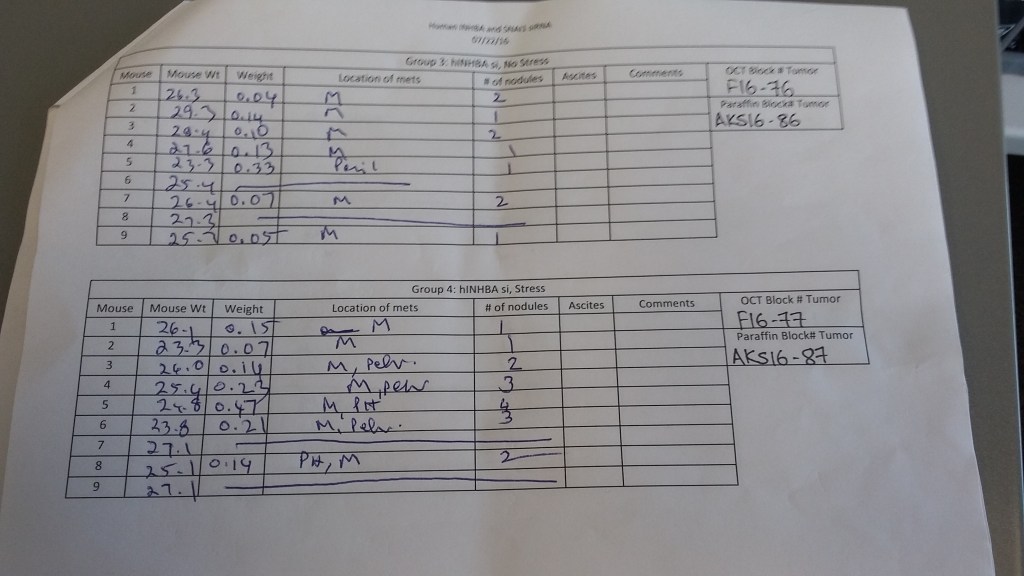 Human INHBA and SNAI1 siRNA
07/22/16
Group 3: hINHBA si, No Stress
Mouse Mouse Wt Weight Location of mets # of nodules Ascites Comments OCT Block # Tumor
F16-76
1 26.3 0.04 M 2
Paraffin Block# Tumor
2 29.3 0.14 M 1
AKS16-86
3 28.4 0.10 M 2
4 27.6 0.13 M 1
5 23.3 0.33 1
6 25.4
7 26.4 0.07 M 2
8 27.3
9 25.7 0.05 M 1
Group 4: hINHBA si, Stress
Mouse Mouse Wt Weight Location of mets # of nodules Ascites Comments OCT Block # Tumor
F16-77
1 26.1 0.15 M 1
Paraffin Block# Tumor
2 23.3 0.07 M 1
AKS16-87
3 0.14 M, Pelv. 2
4 25.4 0.23 M, pelv 3
5 24.8 0.47 M, PH 4
6 23.8 0.21 M, Pelv. 3
7 27.1
8 25.1 0.14 PH, M 2
9 27.1